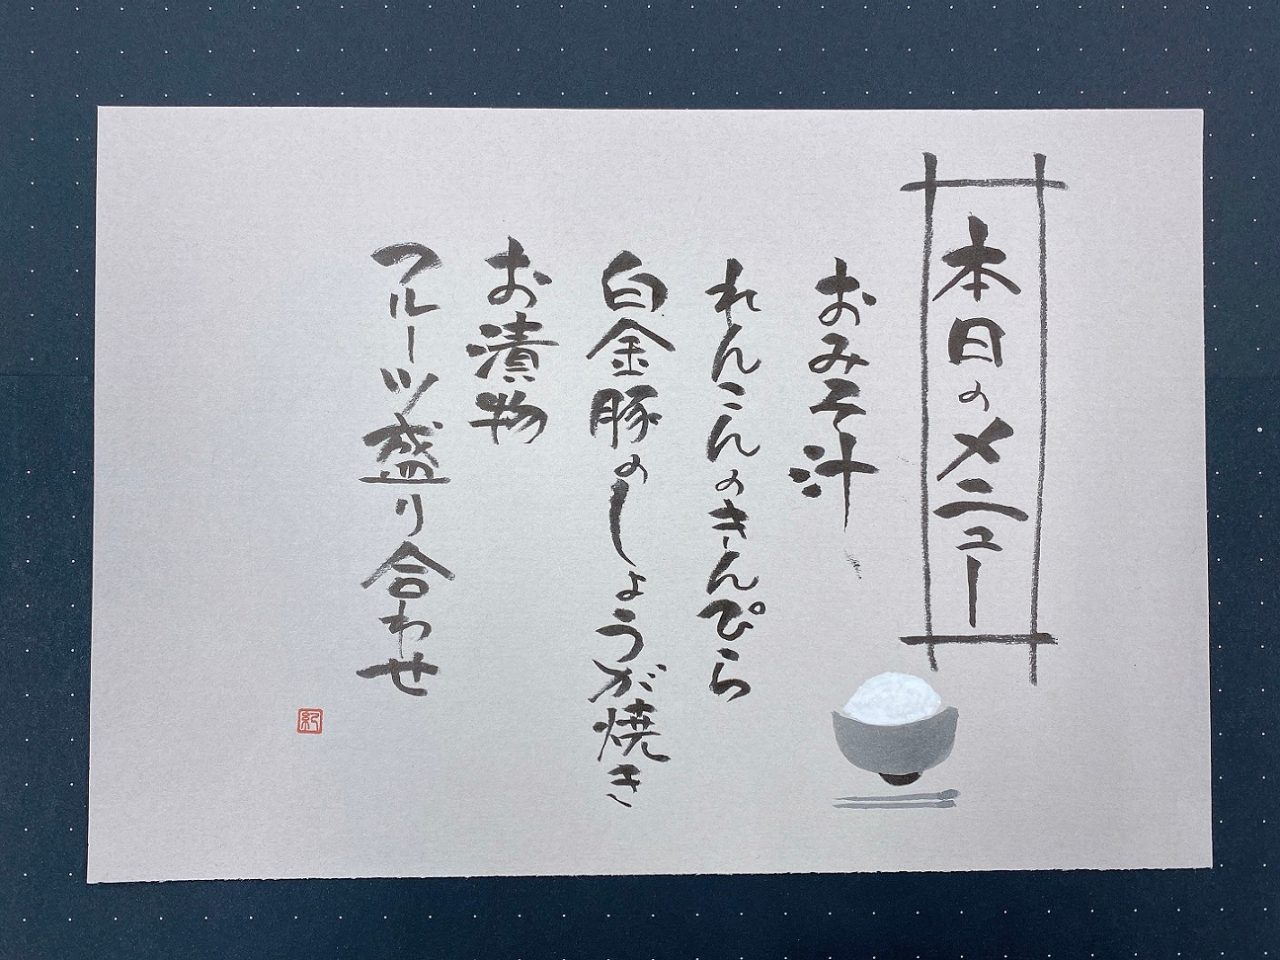 本日のメニュー
おみそ汁
れんこんのきんぴら
白金豚のしょうが焼き
お漬物
フルーツ盛り合わせ
紀